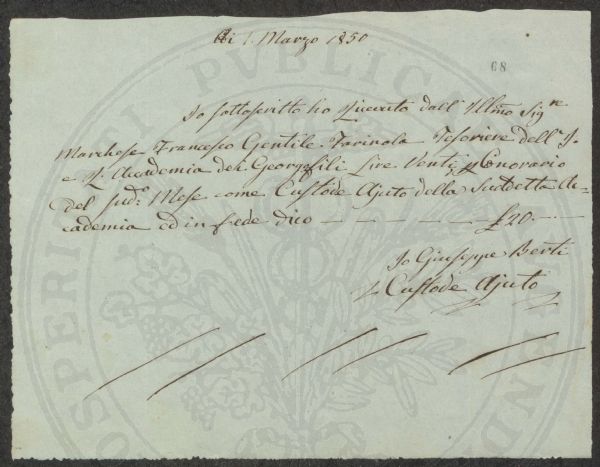 Ai 1. Marzo 1850
68
Io sottoscritto ho Ricevuto dall'Illmo Sigre
Marchese Francesco Gentile Farinola Tesoriere dell'I.
e R. Accademia dei Georgofili Lire Venti Onorario
del sud.o Mese come Custode Ajuto della Suddetta Ac-
cademia ed in fede dico — — — — — £ 20. —
Io Giuseppe Berti
Custode Ajuto
PROSPERITATI PUBLICAE